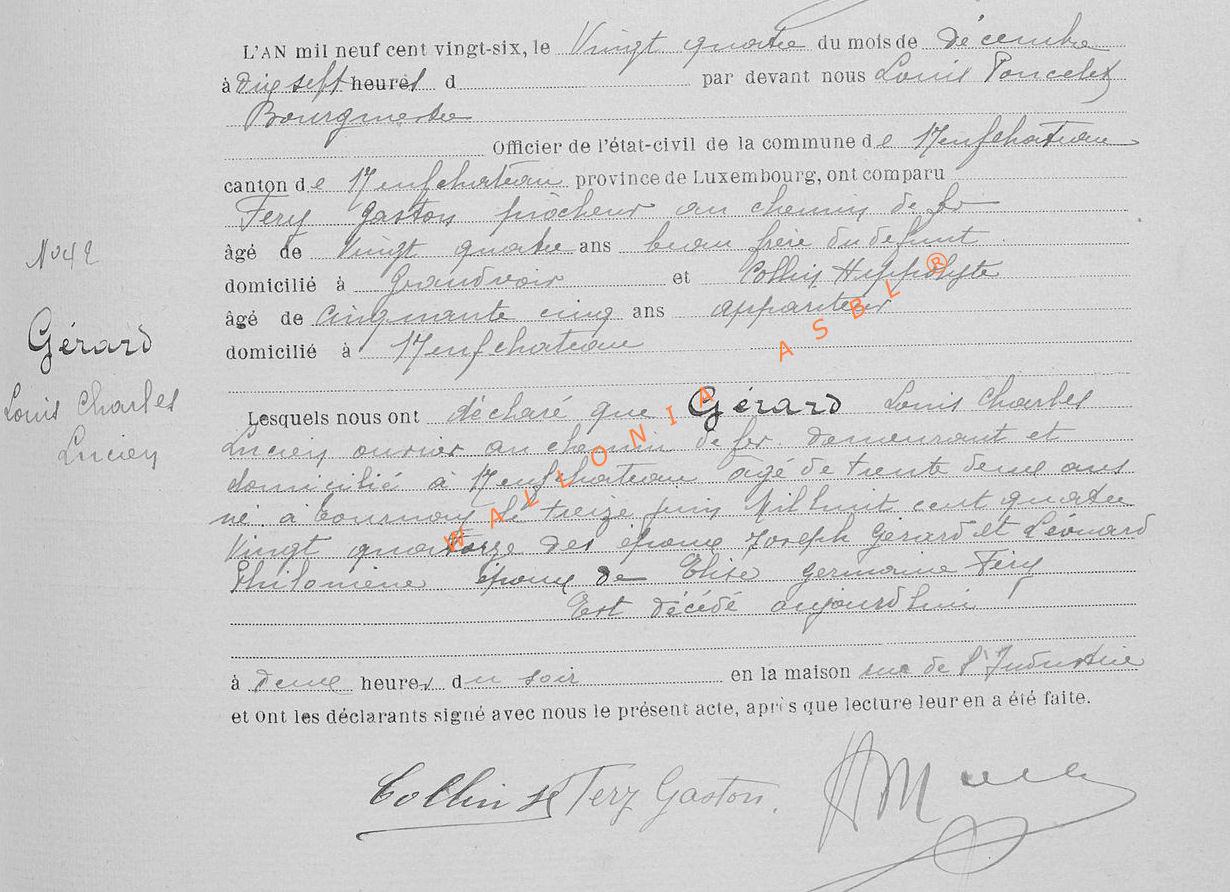 L'AN mil neuf cent vingt-six, le Vingt quatre du mois de décembre
à dix sept heures d par devant nous Louis Poncelet
Bourgmestre
Officier de l'état-civil de la commune de Neufchateau
canton de Neufchateau province de Luxembourg, ont comparu
Fery Gaston piocheur au chemin de fer
âgé de Vingt quatre ans beau frère du defunt
domicilié à Grandvoir et Collin Hyppolyte
âgé de Cinquante cinq ans appariteur
domicilié à Neufchateau
No 42
Gérard
Louis Charles
Lucien
Lesquels nous ont déclaré que Gérard Louis Charles
Lucien ouvrier au chemin de fer demeurant et
domicilié à Neufchateau âgé de trente deux ans
né à Tournay le treize juin Mil huit cent quatre
Vingt quatorze des époux Joseph Gérard et Léonard
Philomène époux de Elise Germaine Féry
Est décédé aujourd'hui
à deux heures du soir en la maison rue de l'Industrie
et ont les déclarants signé avec nous le présent acte, après que lecture leur en a été faite.
Collin Fery Gaston.
WALLONIA ASBL ®